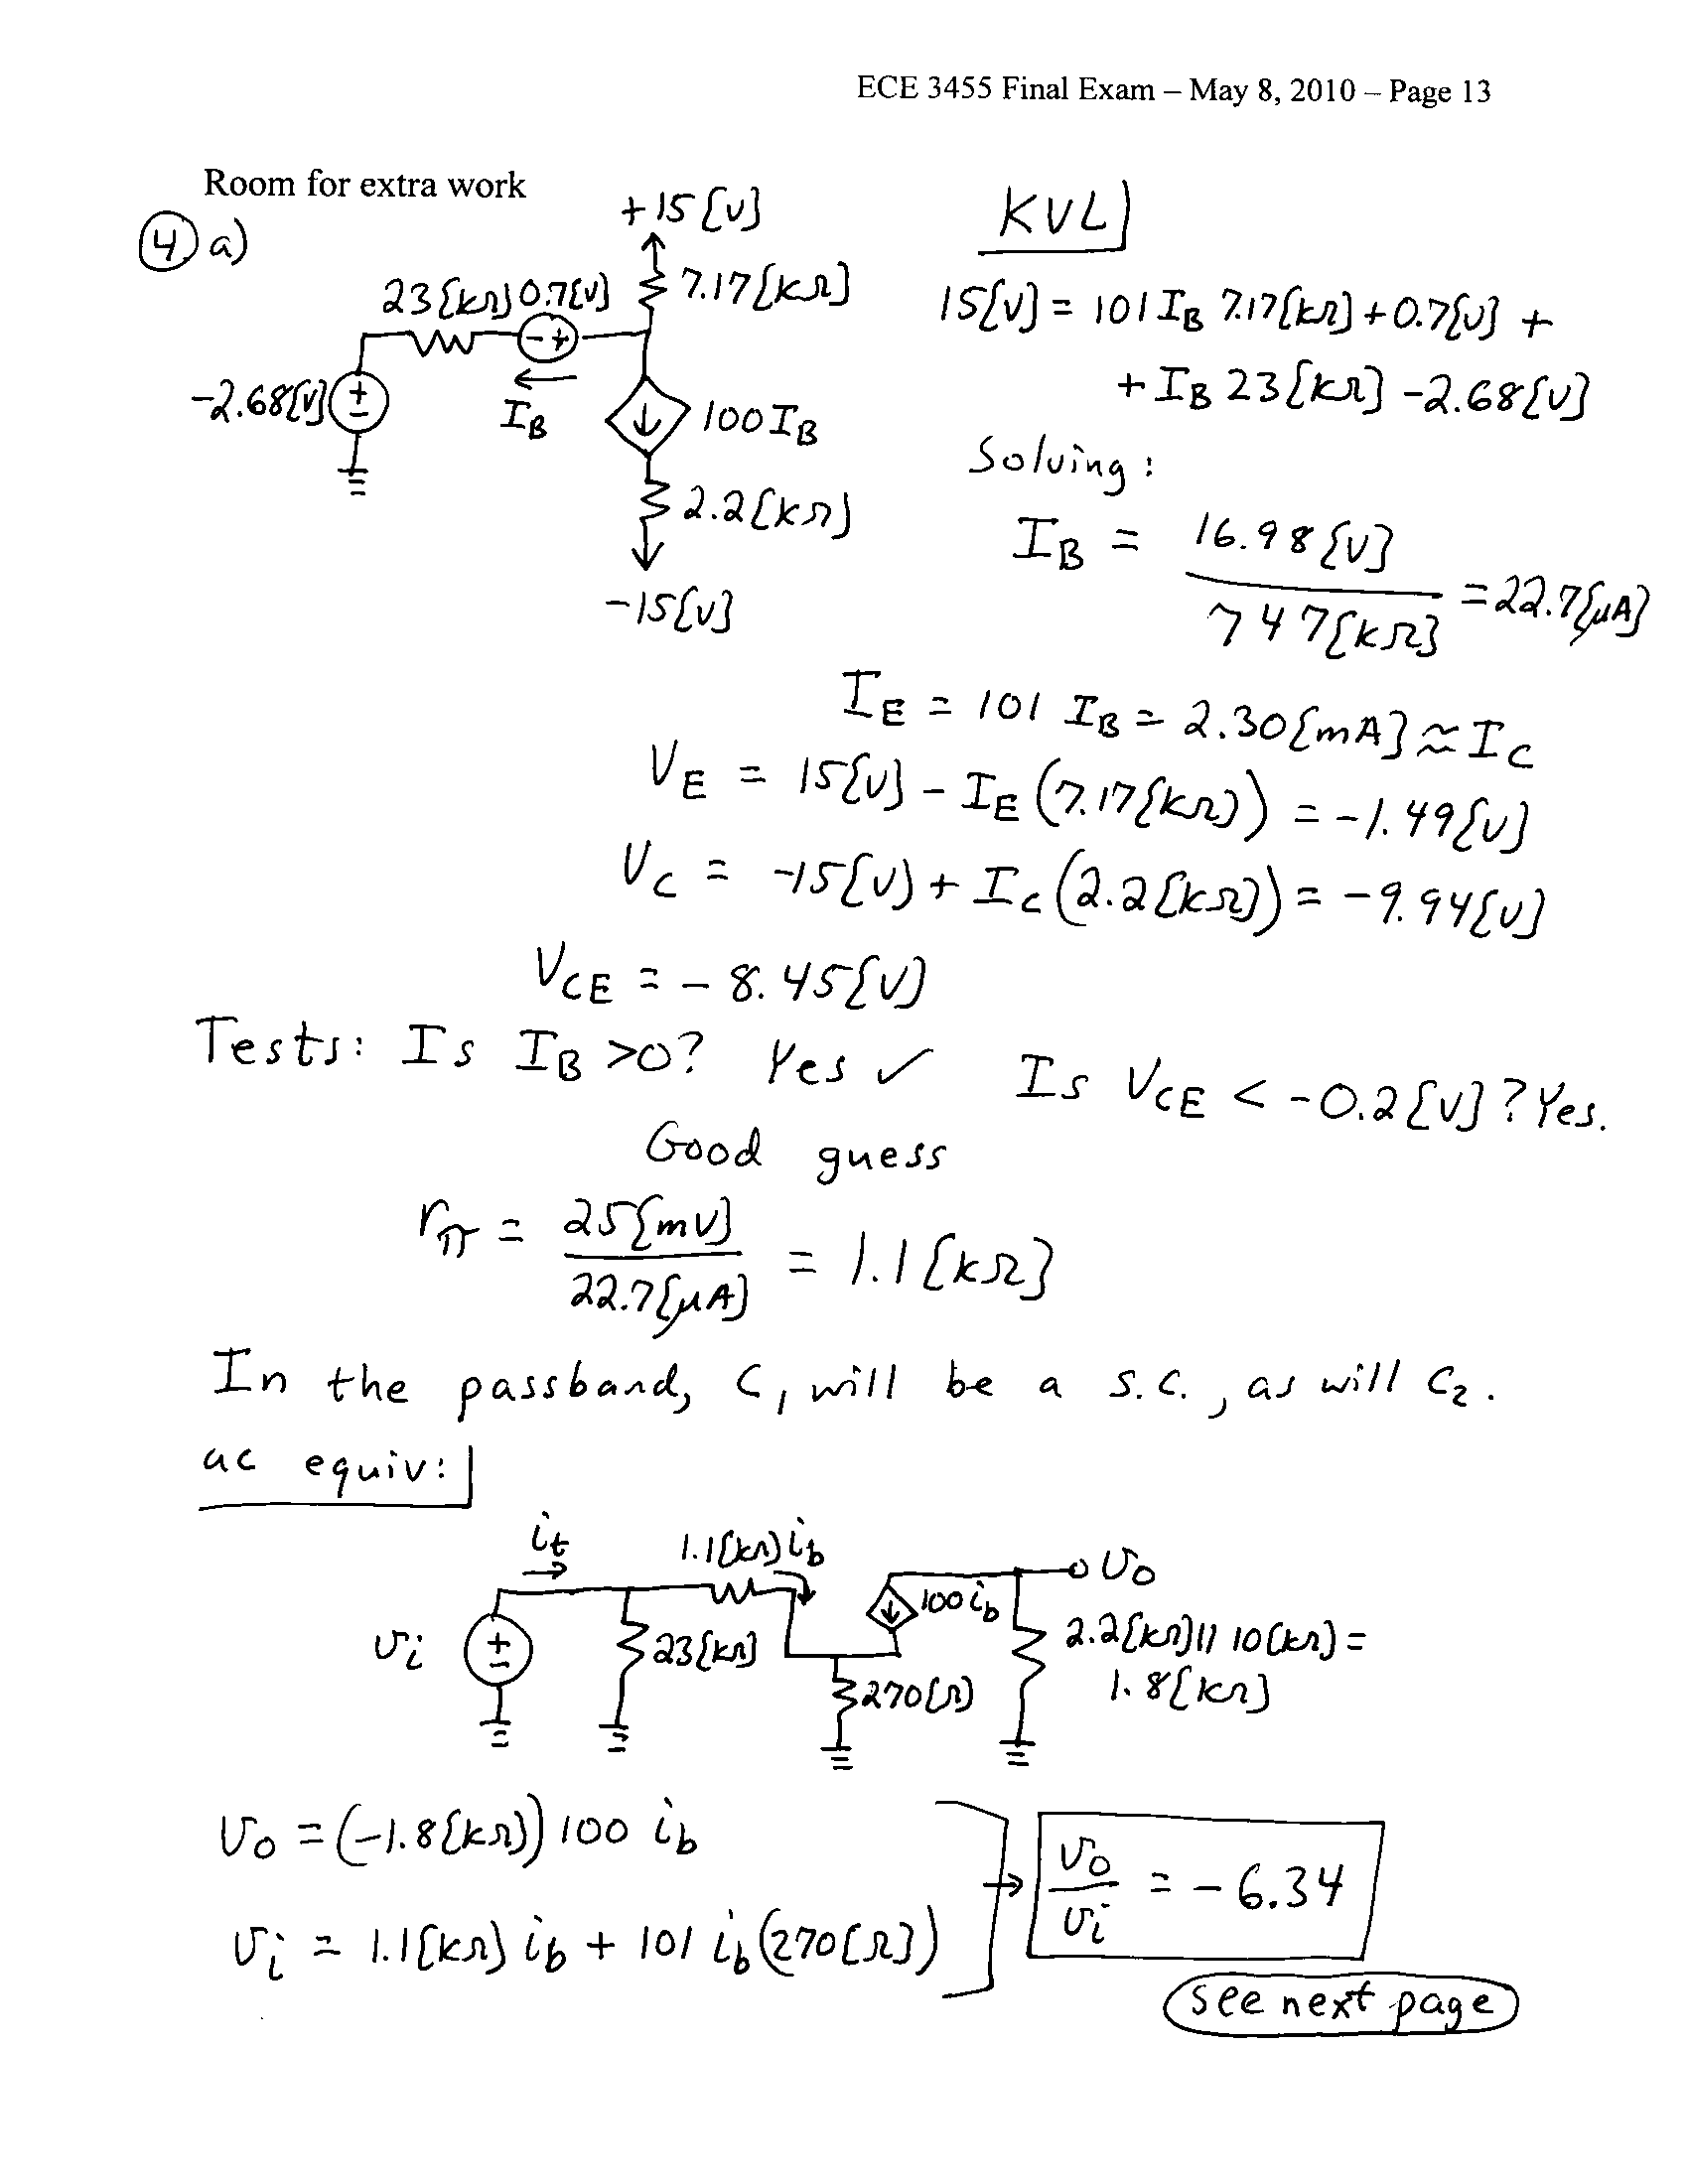 ECE 3455 Final Exam – May 8, 2010 – Page 13
Room for extra work
④ a)
+15[V]
23[kΩ] 0.7[V]
7.17[kΩ]
- +
-2.68[V]
+
-
I_B
100 I_B
2.2[kΩ]
-15[V]
KVL
15[V] = 101 I_B 7.17[kΩ] + 0.7[V] +
+ I_B 23[kΩ] - 2.68[V]
Solving:
I_B = 16.98[V] / 747[kΩ] = 22.7[μA]
I_E = 101 I_B = 2.30[mA] ≈ I_C
V_E = 15[V] - I_E (7.17[kΩ]) = -1.49[V]
V_C = -15[V] + I_C (2.2[kΩ]) = -9.94[V]
V_CE = - 8.45[V]
Tests: Is I_B >0? Yes ✓ Is V_CE < -0.2[V]? Yes.
Good guess
r_π = 25[mV] / 22.7[μA] = 1.1[kΩ]
In the passband, C_1 will be a s.c., as will C_2.
ac equiv:
i_t
1.1[kΩ] i_b
v_o
100 i_b
v_i
+
-
23[kΩ]
270[Ω]
2.2[kΩ] || 10[kΩ] =
1.8[kΩ]
v_o = (-1.8[kΩ]) 100 i_b
v_i = 1.1[kΩ] i_b + 101 i_b (270[Ω])
→ v_o / v_i = - 6.34
see next page